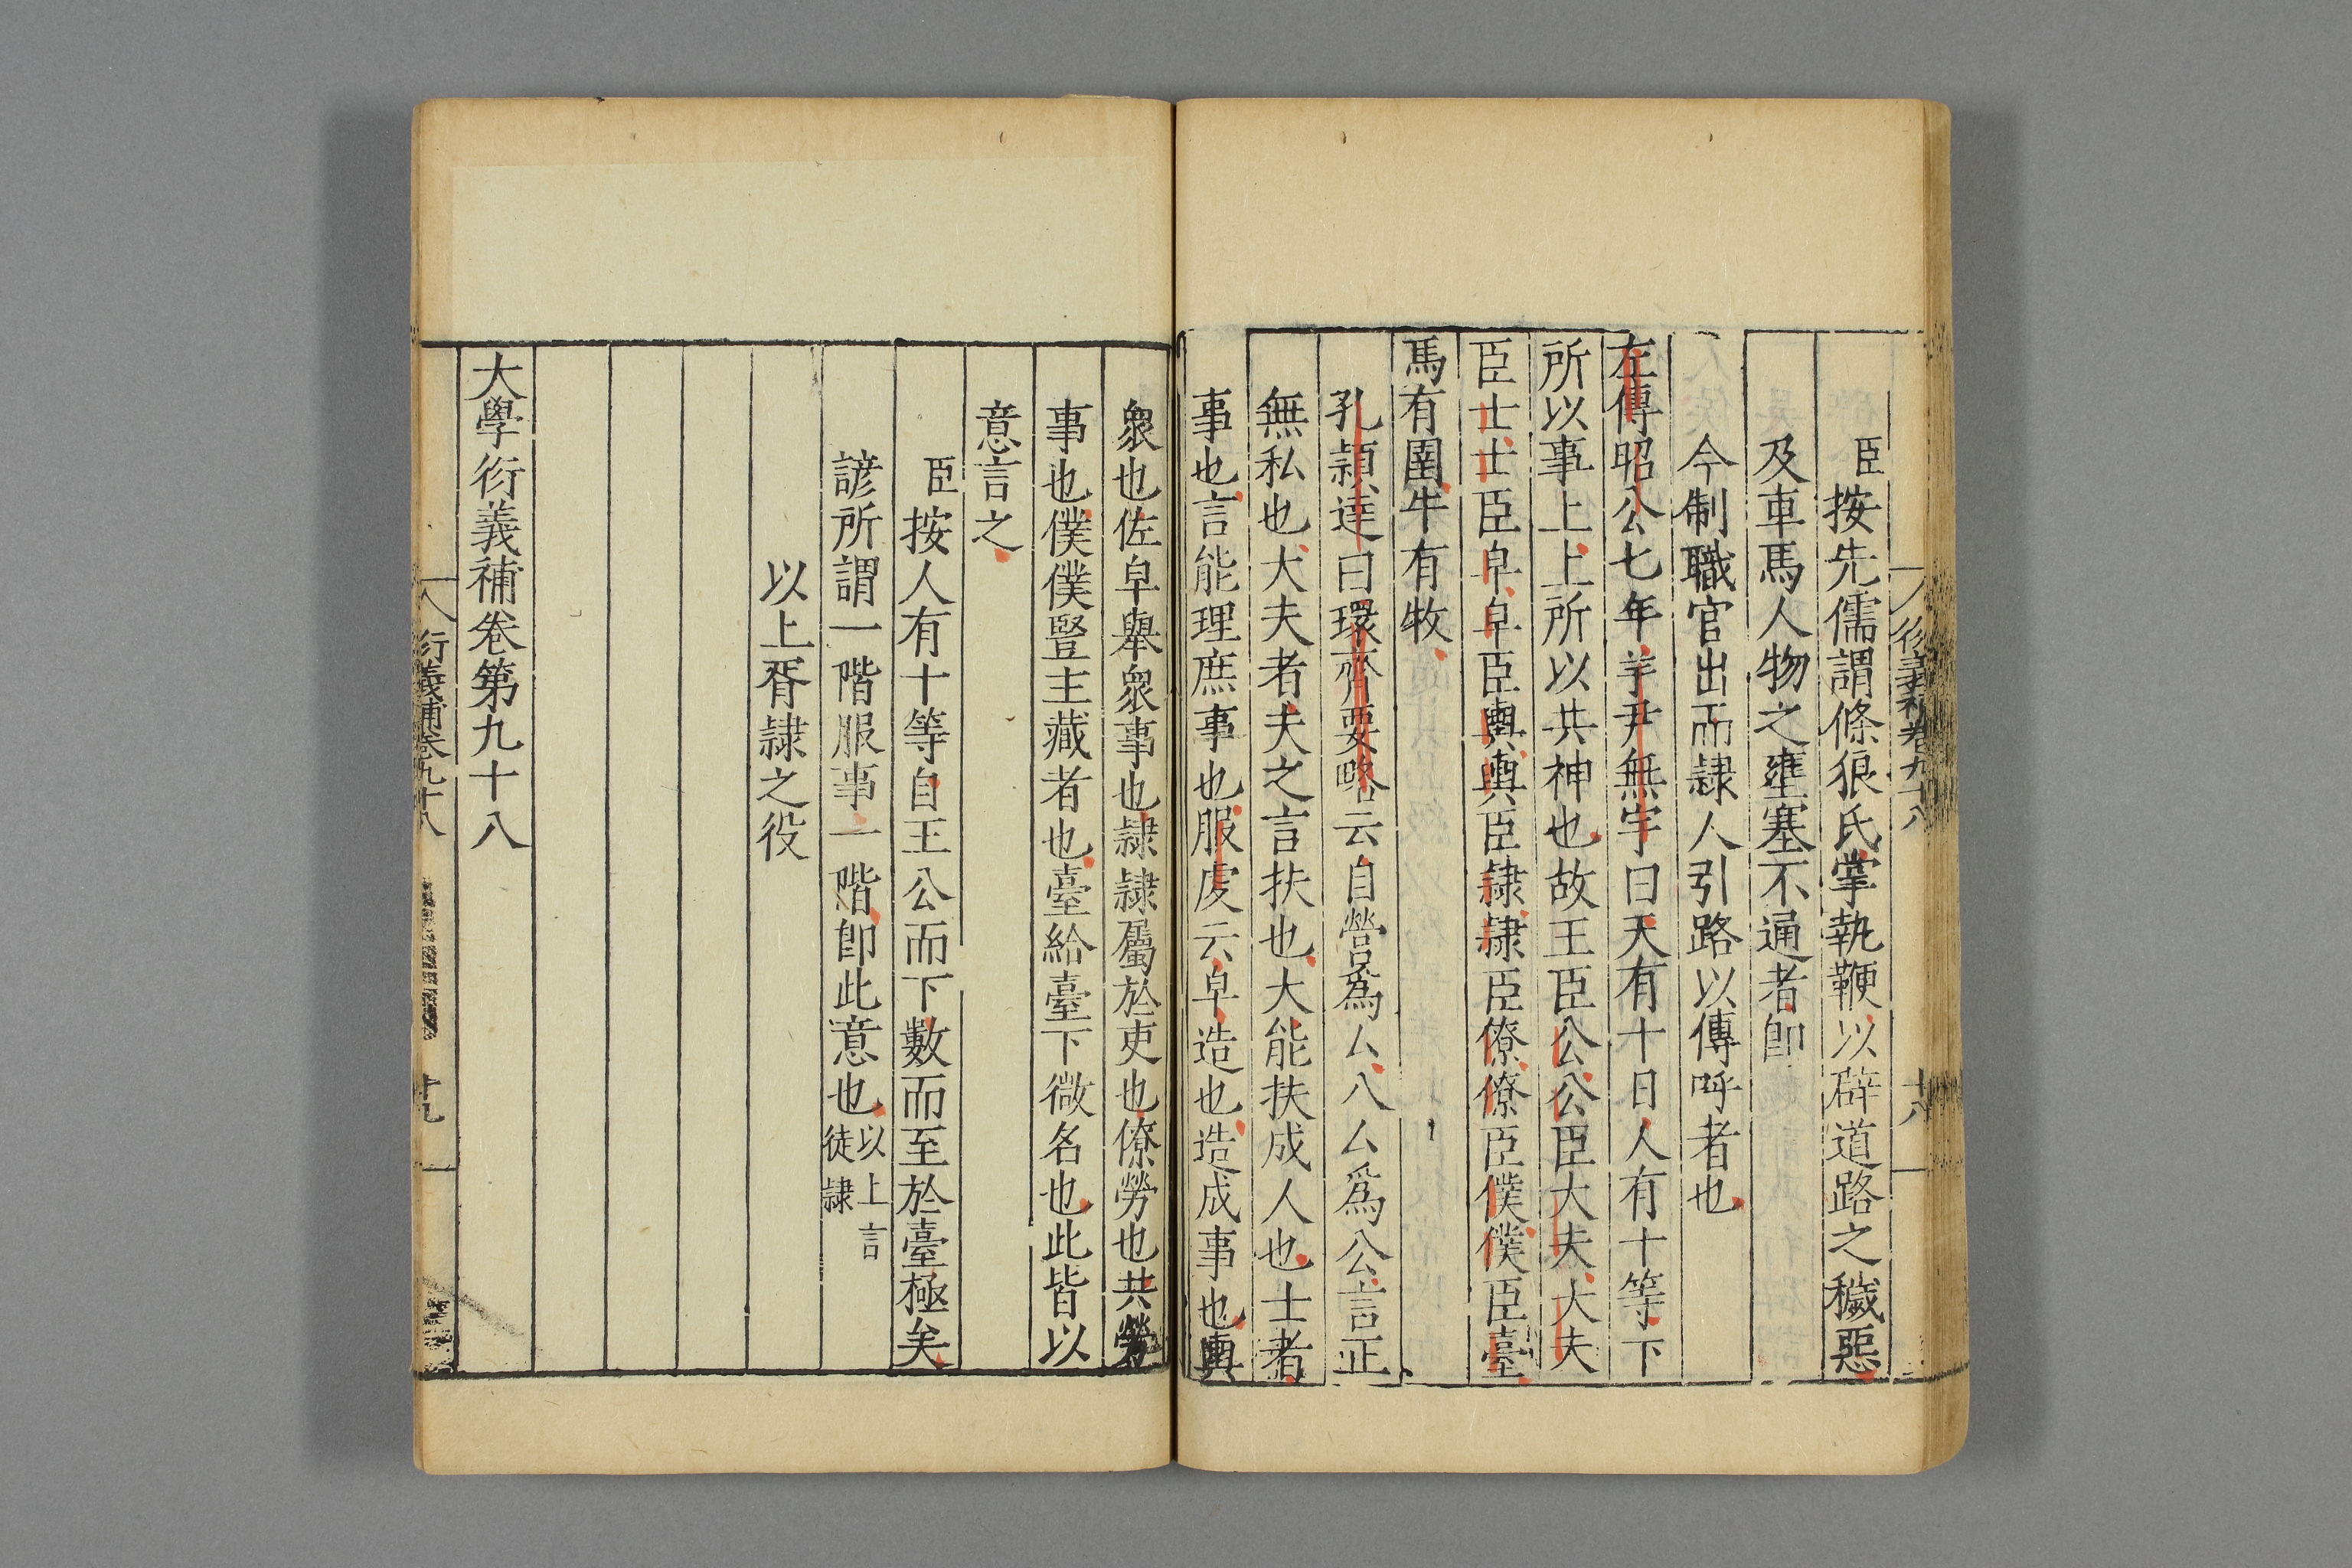 臣按先儒謂條狼氏掌執鞭以辟道路之穢惡
及車馬人物之壅塞不通者卽
今制職官出而隷人引路以傳呼者也
左傳昭公七年芋尹無宇曰天有十日人有十等下
所以事上上所以共神也故王臣公公臣大夫大夫
臣士士臣皁皁臣輿輿臣隷隷臣僚僚臣僕僕臣臺
馬有圉牛有牧
孔頴達曰環齊要略云自營爲厶八厶爲公言正
無私也大夫者夫之言扶也大能扶成人也士者
事也言能理庶事也服虔云皁造也造成事也輿
衆也佐皁舉衆事也隷隷屬於吏也僚勞也共勞
事也僕僕豎主藏者也臺給臺下微名也此皆以
意言之
臣按人有十等自王公而下數而至於臺極矣
諺所謂一階服事一階卽此意也以上言徒隷
以上胥隷之役
大學衍義補卷第九十八
衍義補卷九十八
十九
衍義補卷九十八
十八